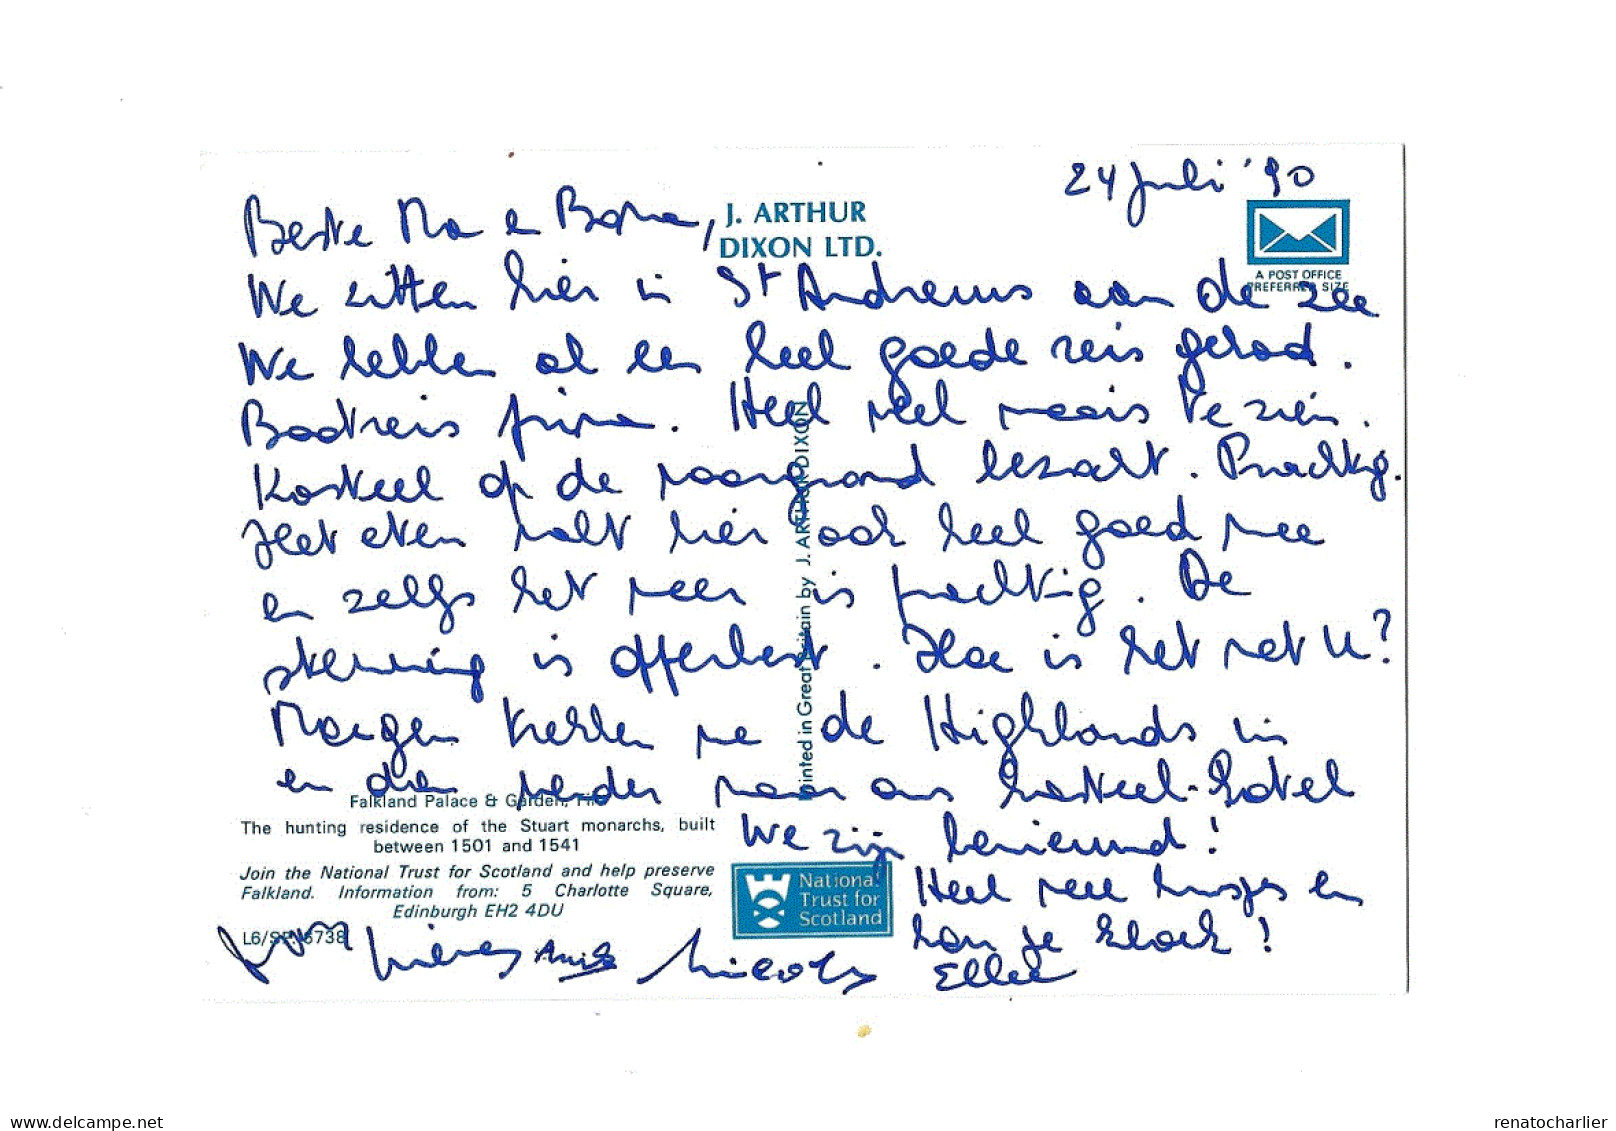 24 Juli '90
Beste Ma en Boma,
J. ARTHUR
DIXON LTD.
A POST OFFICE
PREFERRED SIZE
We zitten hier in St Andrews aan de zee
We hebben al een heel goede reis gehad.
Bootreis prima. Heel veel moois te zien.
Kasteel op de voorgrond bezocht. Prachtig.
Het eten valt hier ook heel goed mee
en zelfs het weer is prachtig. De
stemming is opperbest. Hoe is het met U?
Morgen trekken we de Highlands in
en dan verder naar ons kasteel-hotel
We zijn benieuwd!
Heel veel kusjes en
hou je kloek!
Ellie
Printed in Great Britain by J. ARTHUR DIXON
Falkland Palace & Garden, Fife
The hunting residence of the Stuart monarchs, built
between 1501 and 1541
Join the National Trust for Scotland and help preserve
Falkland. Information from: 5 Charlotte Square,
Edinburgh EH2 4DU
L6/SP 6738
National
Trust for
Scotland
Nicolas
delcampe.net
renatocharlier